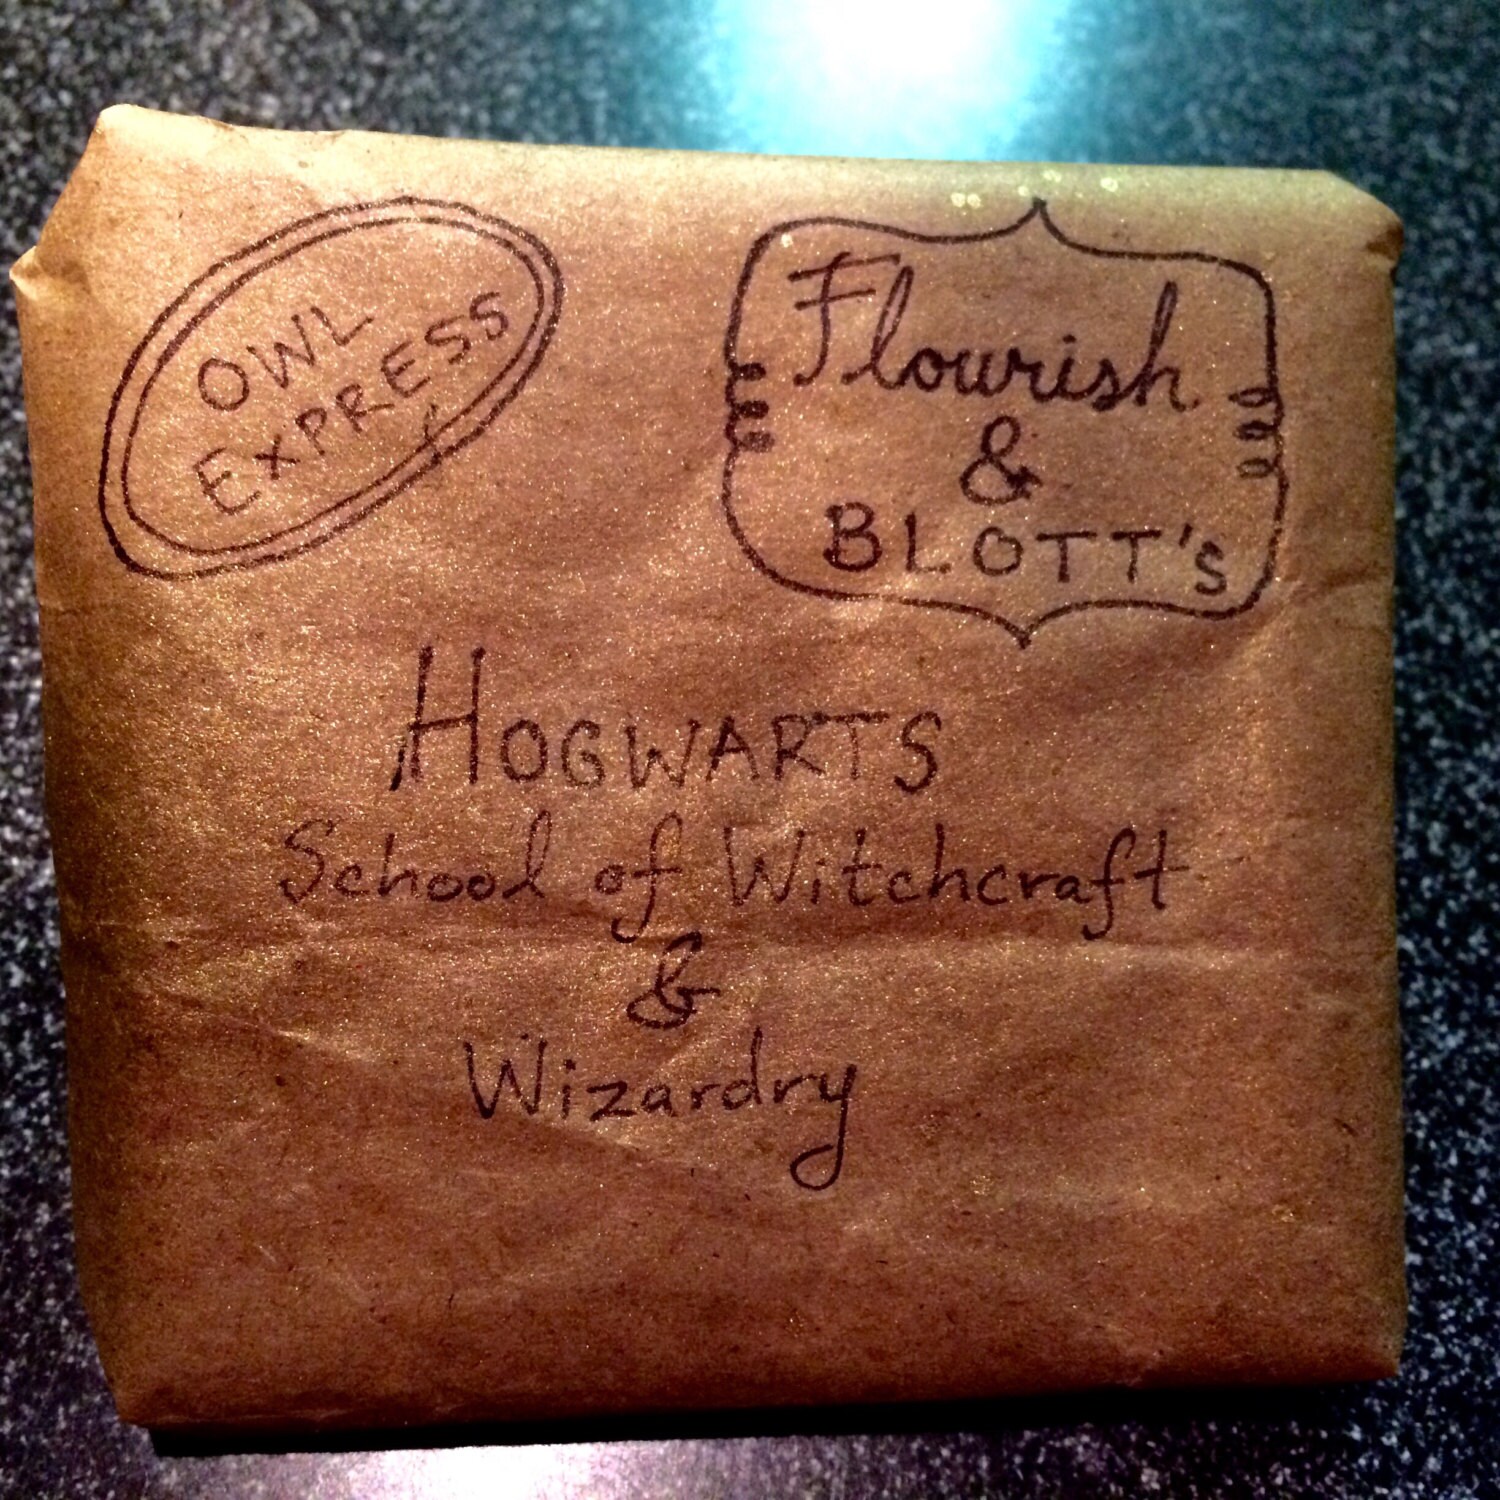 OWL
EXPRESS
Flourish
&
BLOTT's
HOGWARTS
School of Witchcraft
&
Wizardry